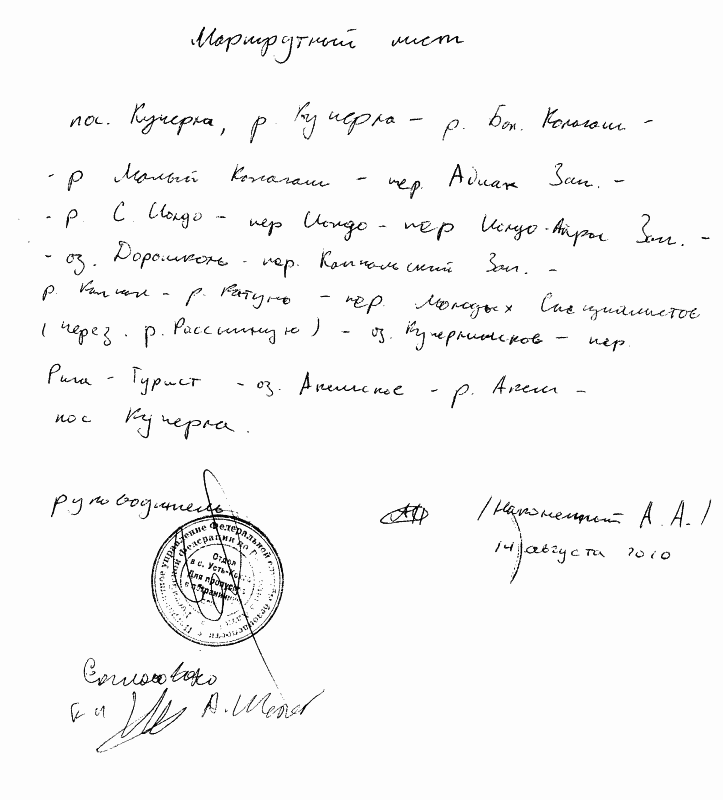 Маршрутный лист
пос. Кучерла, р. Кучерла – р. Бол. Колагаш –
- р Малый Колагаш – пер. Абиак Зап. –
- р. С. Иолдо – пер Иолдо – пер Иолдо-Айры Зап. –
- оз. Дарашколь – пер. Капчальский Зап. –
р. Капчал – р. Катунь – пер. Молодых Специалистов
(через р. Рассыпную) – оз. Кучерлинское – пер.
Рига – Турист – оз. Аккемское – р. Аккем –
пос Кучерла.
руководитель
/ А. А. /
14 августа 2010
Пограничное управление Федеральной службы безопасности
Российской Федерации по
Отдел
в с. Усть-
Для пропусков
в пограничную
Согласовано